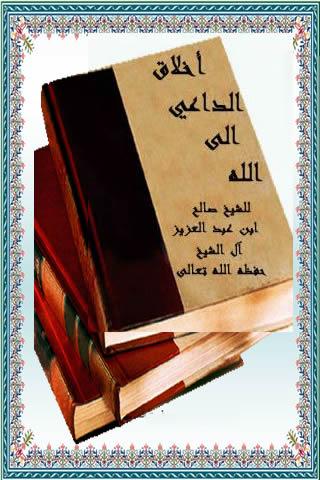 أخلاق
الداعي
الى
الله
للشيخ صالح
ابن عبد العزيز
آل الشيخ
حفظه الله تعالى